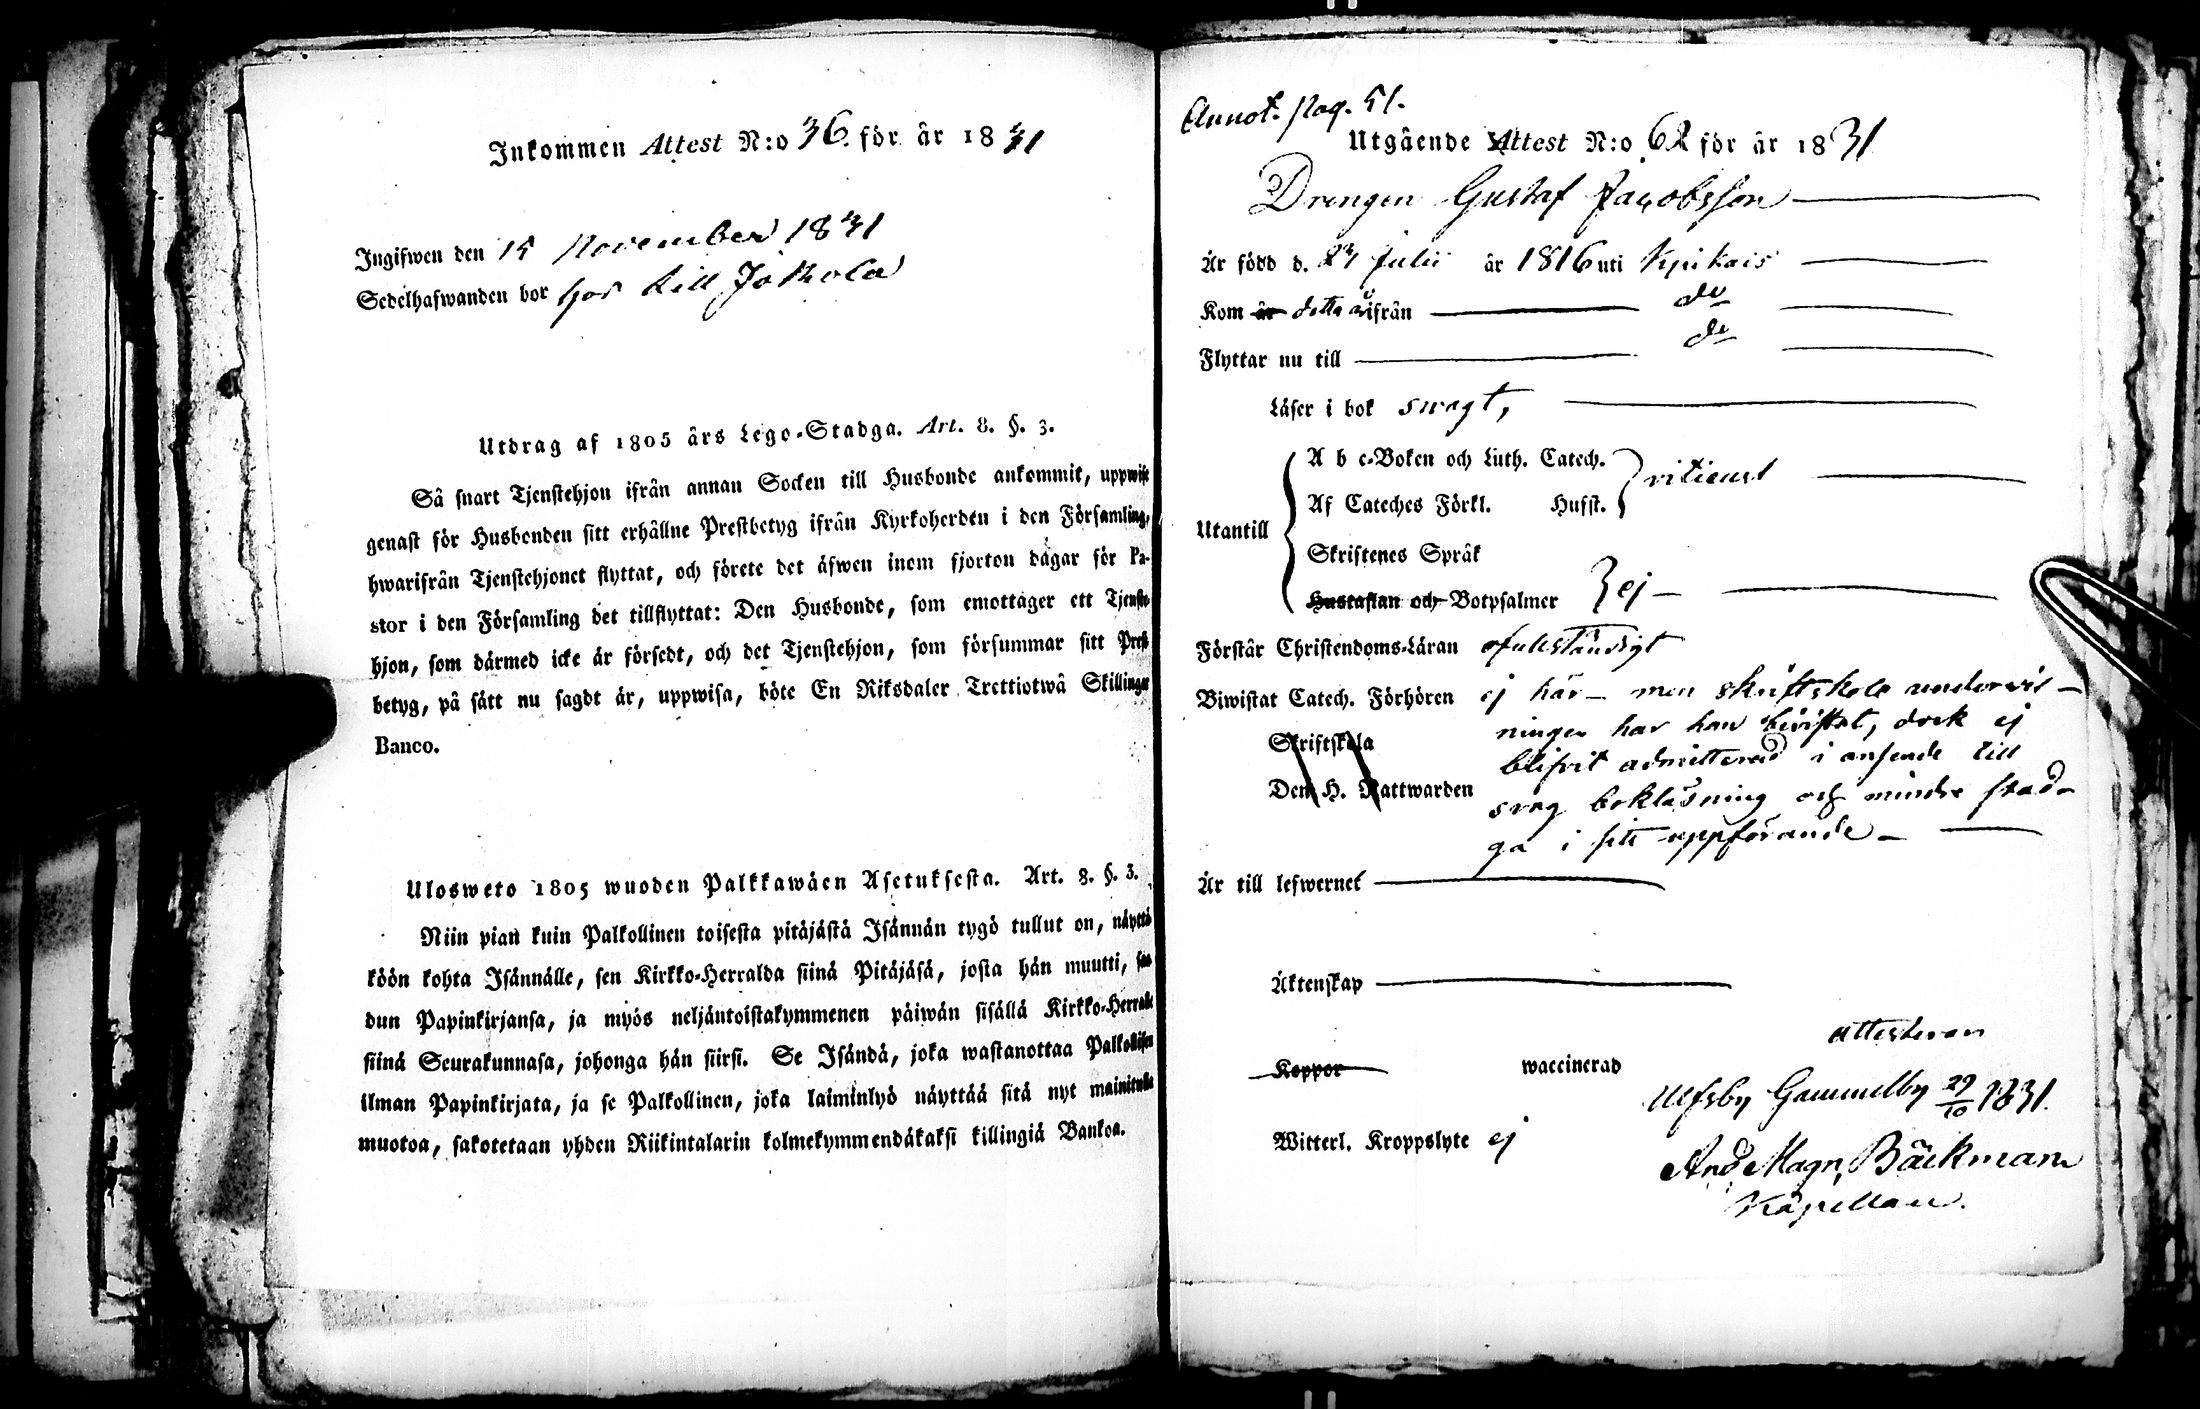 Inkommen Attest N:o 36. för år 1831
Ingifwen den 15 November 1831
Sedelhafwanden bor hos till Jokola
Utdrag af 1805 års Lego-Stadga. Art. 8. §. 3.
Så snart Tjenstehjon ifrån annan Socken till Husbonde ankommit, uppwise
genast för Husbonden sitt erhållne Prestbetyg ifrån Kyrkoherden i den Församling,
hwarifrån Tjenstehjonet flyttat, och förete det äfwen inom fjorton dagar för Pa-
stor i den Församling det tillflyttat: Den Husbonde, som emottager ett Tjenste-
hjon, som därmed icke är försedt, och det Tjenstehjon, som försummar sitt Prest-
betyg, på sätt nu sagdt är, uppwisa, böte En Riksdaler Trettiotwå Skillingar
Banco.
Ulosweto 1805 wuoden Palkkawäen Asetuksesta. Art. 8. §. 3.
Niin pian kuin Palkollinen toisesta pitäjästä Isännän tygö tullut on, näyttä-
köön kohta Isännälle, sen Kirkko-Herralda siinä Pitäjäsä, josta hän muutti, saa-
dun Papinkirjansa, ja myös neljäntoistakymmenen päiwän sisällä Kirkko-Herralle
siinä Seurakunnasa, johonga hän siirsi. Se Isändä, joka wastanottaa Palkollisen
ilman Papinkirjata, ja se Palkollinen, joka laiminlyö näyttää sitä nyt mainitulla
muotoa, sakotetaan yhden Riikintalarin kolmekymmendäkaksi killingiä Bankoa.
Annot. pag. 51.
Utgående Attest N:o 62 för år 1831
Drengen Gustaf Jacobsson
Är född d. 23 Julii år 1816 uti Kjukais
Kom är detta år ifrån do
Flyttar nu till do
Läser i bok swagt,
Utantill
A b c-Boken och Luth. Catech.
Af Cateches Förkl. Hufst.
vitieust
Skriftenes Språk
Hustaflan och Botpsalmer ej
Förstår Christendoms-Läran ofullständigt
Biwistat Catech. Förhören ej här - men skriftskole undervis-
ningen har han bivistat, dock ej
Skriftskola
blifvit admitterad i anseende till
Den H. Nattwarden
svag bokläsning och mindre stad-
ga i sitt uppförande -
Är till lefwernet
Äktenskap
attesteras
Koppor waccinerad
Ulfsby Gammelby 29/10 1831.
Witterl. Kroppslyte ej
And. Magn. Bäckman
Kapellan.